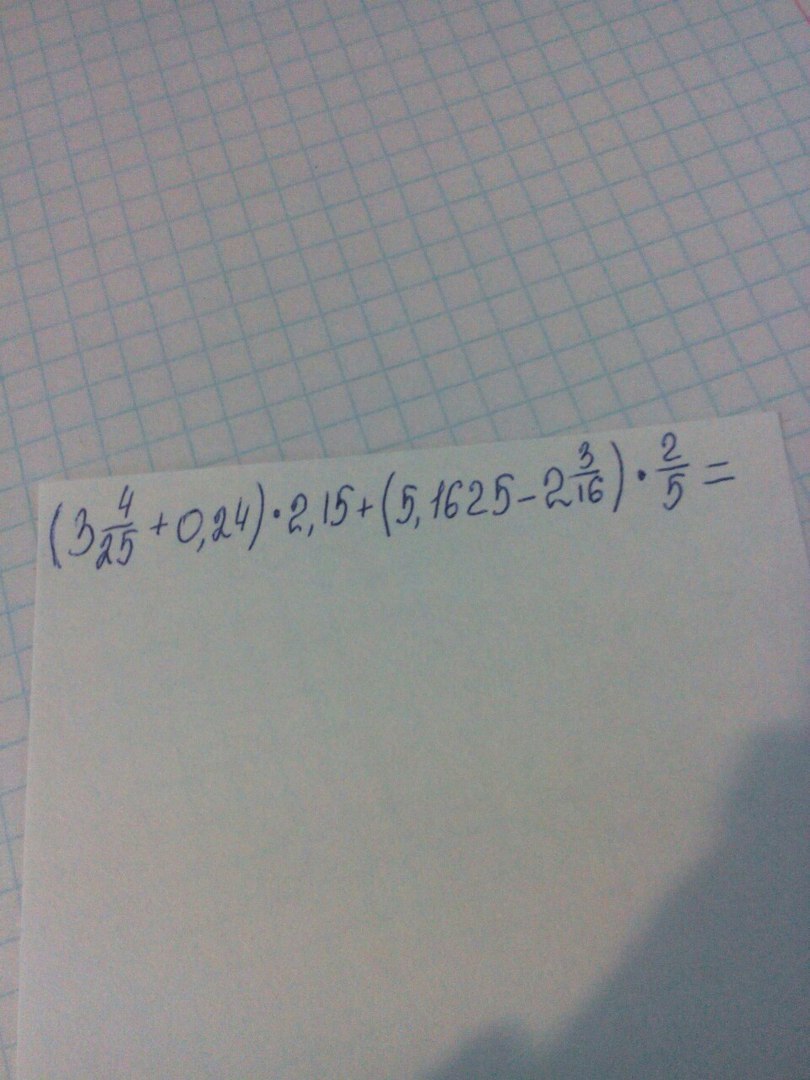 (3 4/25 + 0,24) · 2,15 + (5,1625 - 2 3/16) · 2/5 =